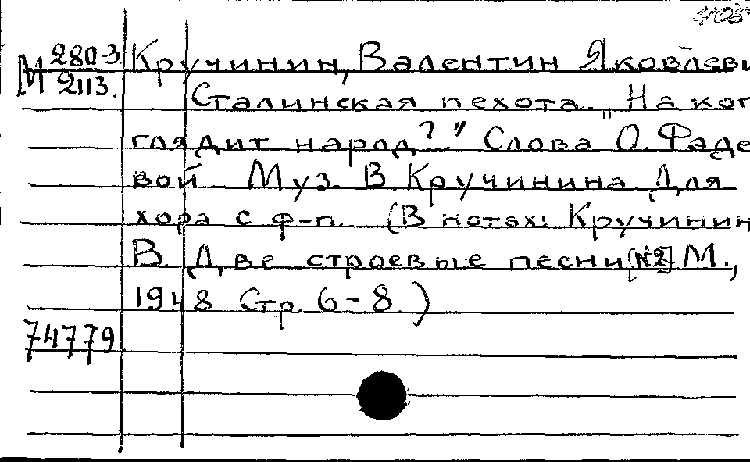 М 280-3 Кручинин, Валентин Яковлеви
2113.
Сталинская пехота. "На ког
глядит народ?" Слова О. Фаде
вой Муз. В. Кручинина Для
хора с ф-п. (В нотах: Кручинин
В. Две строевые песни [№2] М.,
1948 Стр. 6-8.)
74779